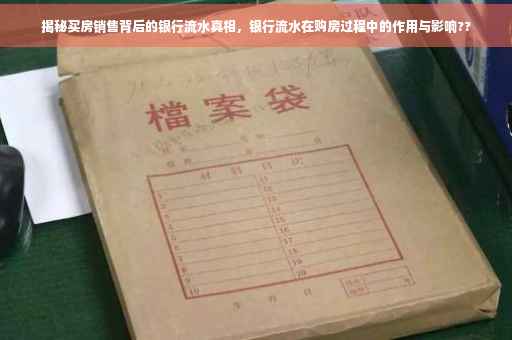 揭秘买房销售背后的银行流水真相，银行流水在购房过程中的作用与影响??
檔案袋
材料目次
1 11
2 12
3 13
4 14
5 15
6 16
7 17
8 18
9 19
10 20
年 月 日